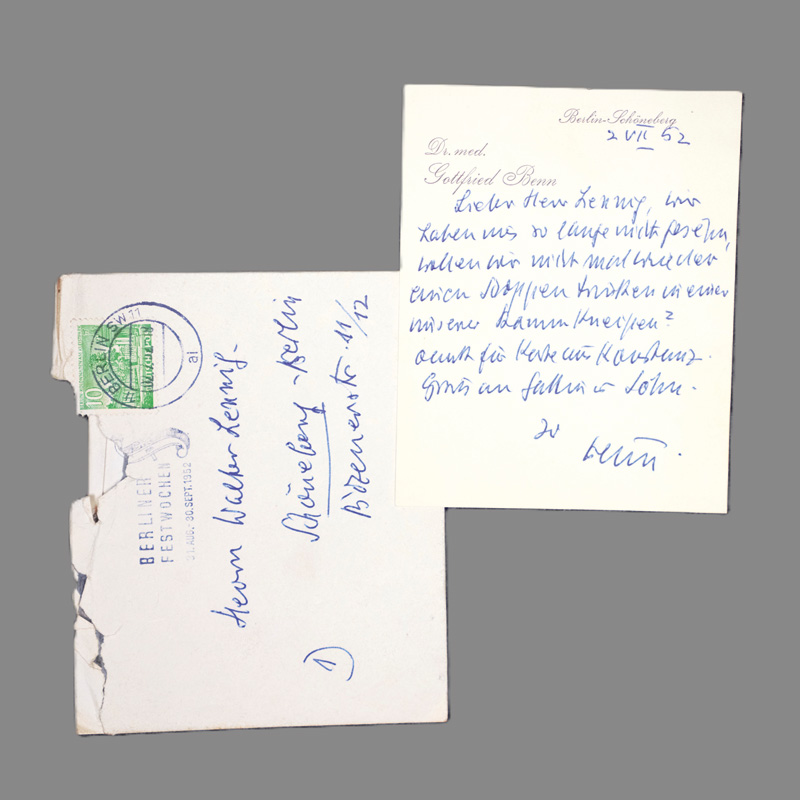 Berlin-Schöneberg
2 VII 52
Dr. med.
Gottfried Benn
Lieber Herr Lennig, wir
haben uns so lange nicht gesehn,
wollen wir nicht mal wieder
einen Schoppen trinken in einer
unserer Stammkneipen?
Dank für Karte aus Konstanz.
Gruss an Gattin u Sohn.
Ihr
Benn.
BERLIN SW 11
ai
10
BERLINER
FESTWOCHEN
31. AUG.-30. SEPT. 1952
Herrn Walter Lennig.
Schöneberg-Berlin
Bozenerstr. 11/12
1)